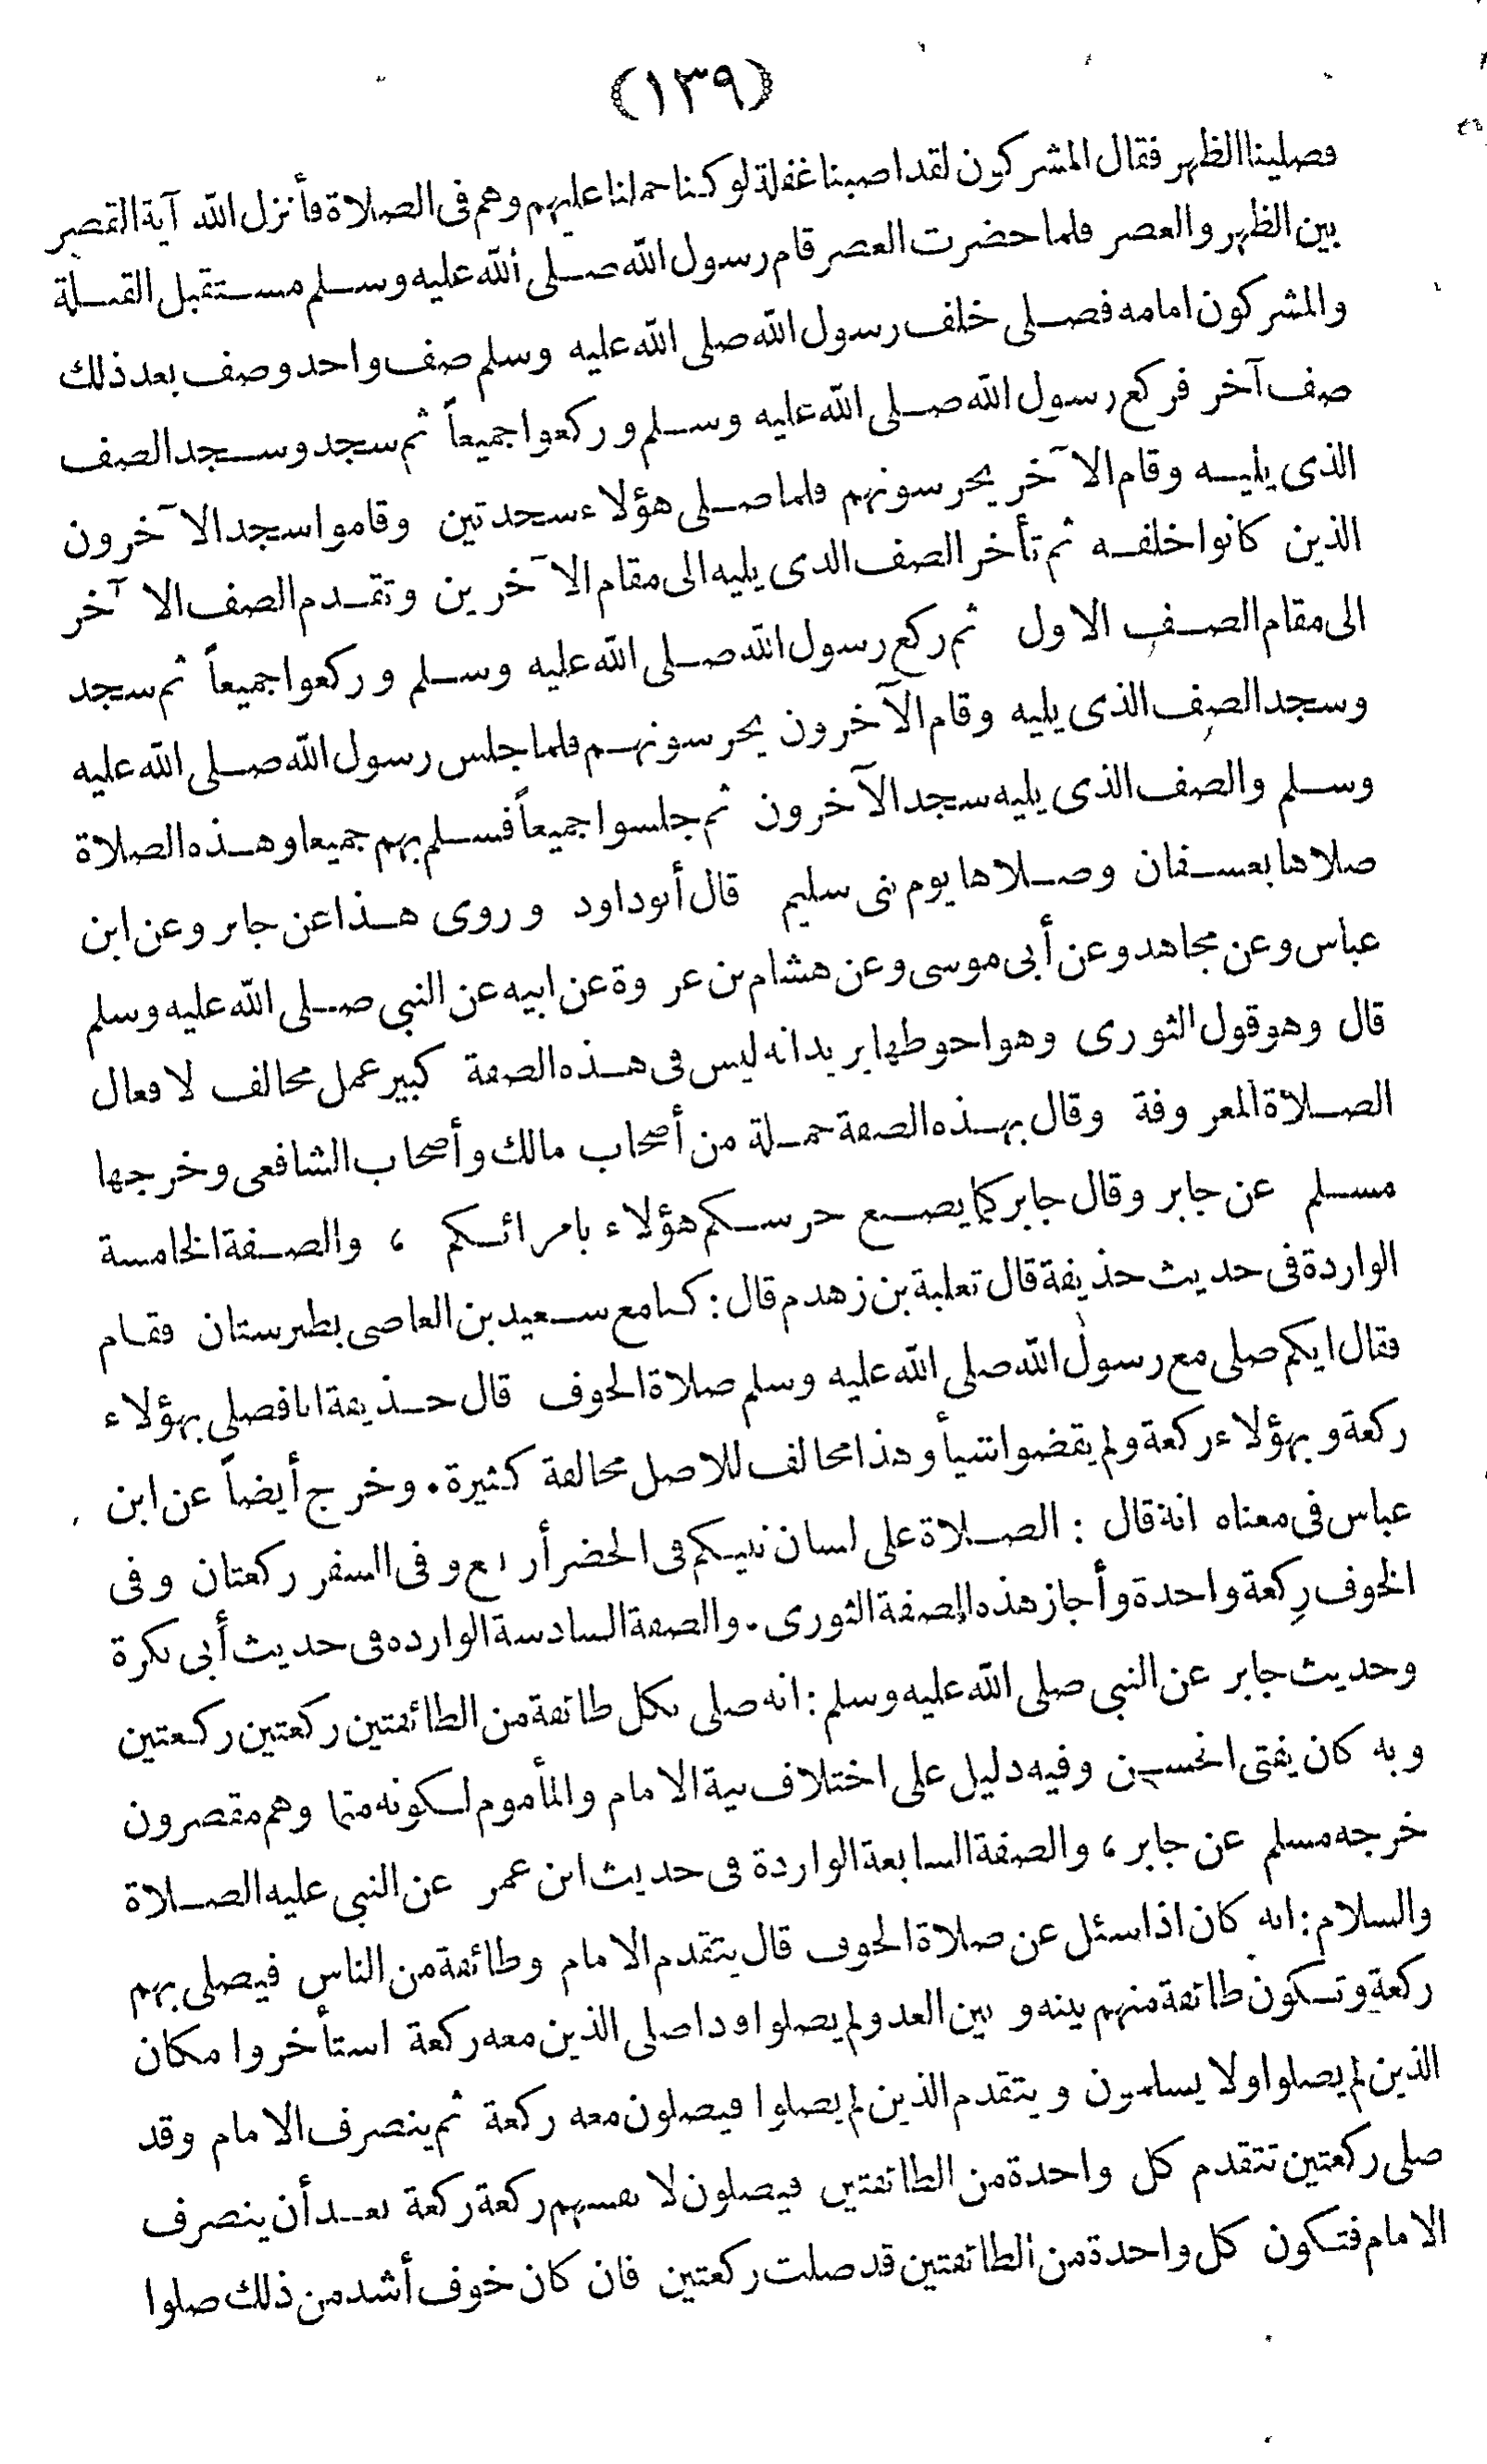 (١٣٩)
فصلينا الظهر فقال المشركون لقد اصبنا غفلة لو كنا حملنا عليهم وهم فى الصلاة فأنزل الله آية القصر
بين الظهر والعصر فلما حضرت العصر قام رسول الله صلى الله عليه وسلم مستقبل القبلة
والمشركون امامه فصلى خلف رسول الله صلى الله عليه وسلم صف واحد وصف بعد ذلك
صف آخر فركع رسول الله صلى الله عليه وسلم وركعوا جميعاً ثم سجد وسجد الصف
الذى يليه وقام الآخر يحرسونهم فلما صلى هؤلاء سجدتين وقاموا سجد الآخرون
الذين كانوا خلفه ثم تأخر الصف الذى يليه الى مقام الآخرين وتقدم الصف الآخر
الى مقام الصف الاول ثم ركع رسول الله صلى الله عليه وسلم وركعوا جميعاً ثم سجد
وسجد الصف الذى يليه وقام الآخرون يحرسونهم فلما جلس رسول الله صلى الله عليه
وسلم والصف الذى يليه سجد الآخرون ثم جلسوا جميعاً فسلم بهم جميعا وهذه الصلاة
صلاها بعسفان وصلاها يوم بنى سليم قال أبو داود وروى هذا عن جابر وعن ابن
عباس وعن مجاهد وعن أبى موسى وعن هشام بن عروة عن ابيه عن النبى صلى الله عليه وسلم
قال وهو قول الثورى وهو احوطها يريد انه ليس فى هذه الصفة كبير عمل مخالف لافعال
الصلاة المعروفة وقال بهذه الصفة جملة من أصحاب مالك وأصحاب الشافعى وخرجها
مسلم عن جابر وقال جابر كما يصنع حرسكم هؤلاء بامرائكم ، والصفة الخامسة
الواردة فى حديث حذيفة قال ثعلبة بن زهدم قال : كنا مع سعيد بن العاصى بطبرستان فقام
فقال ايكم صلى مع رسول الله صلى الله عليه وسلم صلاة الخوف قال حذيفة انا فصلى بهؤلاء
ركعة وبهؤلاء ركعة ولم يقضوا شيأ وهذا مخالف للاصل مخالفة كثيرة . وخرج أيضاً عن ابن
عباس فى معناه انه قال : الصلاة على لسان نبيكم فى الحضر أربع وفى السفر ركعتان وفى
الخوف ركعة واحدة وأجاز هذه الصفة الثورى . والصفة السادسة الوارده فى حديث أبى بكرة
وحديث جابر عن النبى صلى الله عليه وسلم : انه صلى بكل طائفة من الطائفتين ركعتين ركعتين
وبه كان يفتى الحسن وفيه دليل على اختلاف نية الامام والمأموم لكونه متما وهم مقصرون
خرجه مسلم عن جابر ، والصفة السابعة الواردة فى حديث ابن عمر عن النبى عليه الصلاة
والسلام : انه كان اذا سئل عن صلاة الخوف قال يتقدم الامام وطائفة من الناس فيصلى بهم
ركعة وتكون طائفة منهم بينه وبين العدو لم يصلوا فاذا صلى الذين معه ركعة استأخروا مكان
الذين لم يصلوا ولا يسلمون ويتقدم الذين لم يصلوا فيصلون معه ركعة ثم ينصرف الامام وقد
صلى ركعتين تتقدم كل واحدة من الطائفتين فيصلون لانفسهم ركعة ركعة بعد أن ينصرف
الامام فتكون كل واحدة من الطائفتين قد صلت ركعتين فان كان خوف أشد من ذلك صلوا